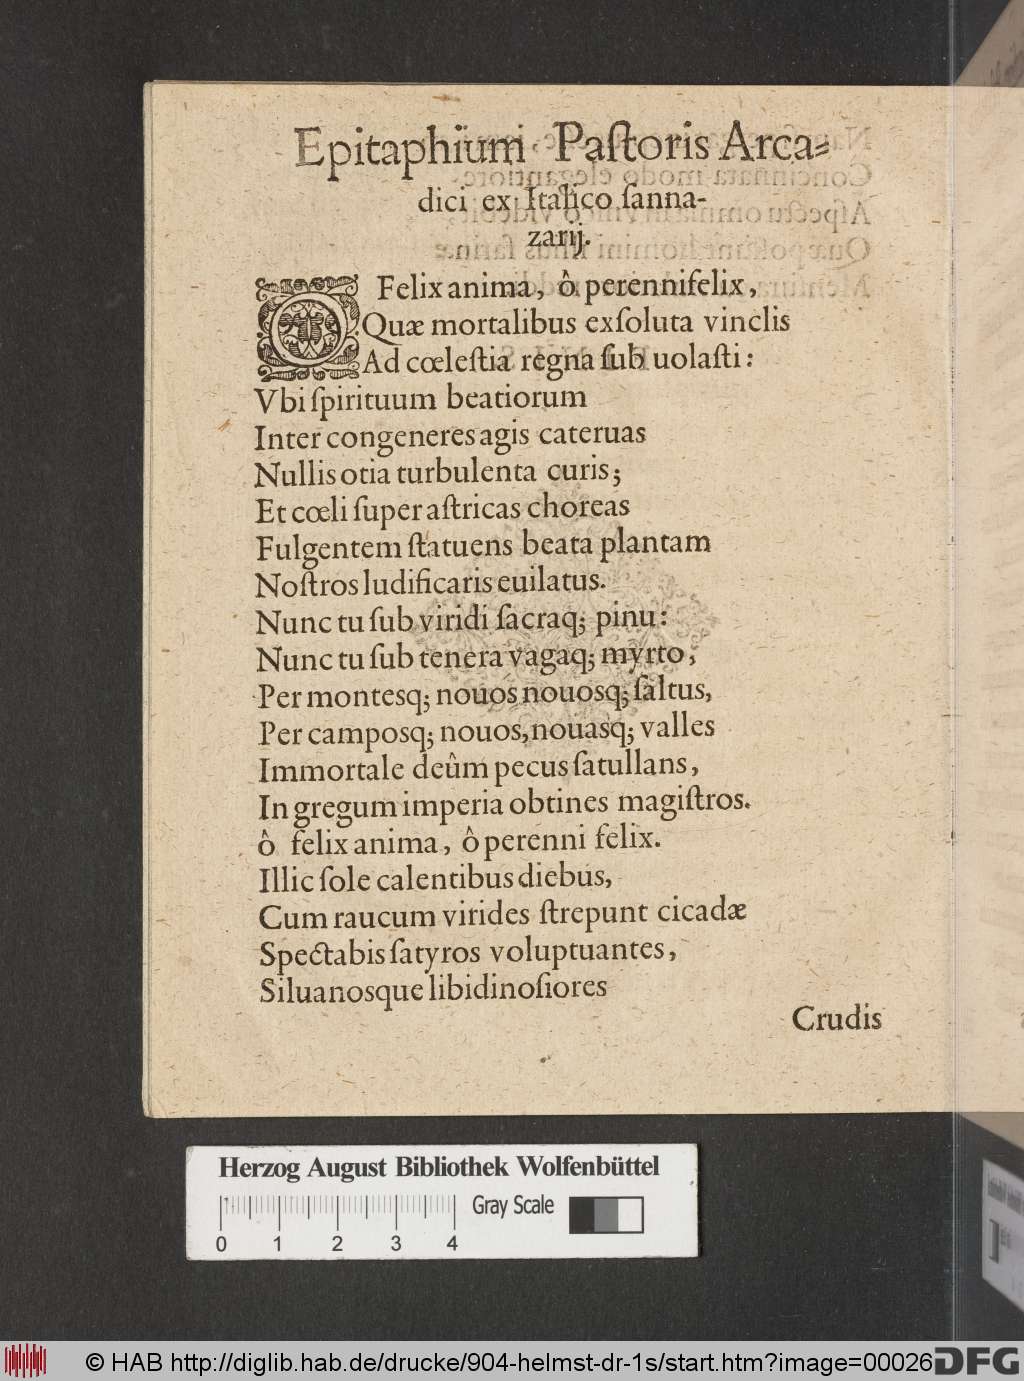 Epitaphium Paſtoris Arca⸗
dici ex Italico ſanna-
zarij.
O Felix anima, ô perennifelix,
Quæ mortalibus exſoluta vinclis
Ad cœleſtia regna ſub uolaſti:
Vbi ſpirituum beatiorum
Inter congeneres agis cateruas
Nullis otia turbulenta curis;
Et cœli ſuper aſtricas choreas
Fulgentem ſtatuens beata plantam
Noſtros ludificaris euilatus.
Nunc tu ſub viridi ſacraq; pinu:
Nunc tu ſub tenera vagaq; myrto,
Per montesq; nouos nouosq; ſaltus,
Per camposq; nouos, nouasq; valles
Immortale deûm pecus ſatullans,
In gregum imperia obtines magiſtros.
ô felix anima, ô perenni felix.
Illic ſole calentibus diebus,
Cum raucum virides ſtrepunt cicadæ
Spectabis ſatyros voluptuantes,
Siluanosque libidinoſiores
Crudis
Herzog August Bibliothek Wolfenbüttel
Gray Scale
0 1 2 3 4
© HAB http://diglib.hab.de/drucke/904-helmst-dr-1s/start.htm?image=00026
DFG